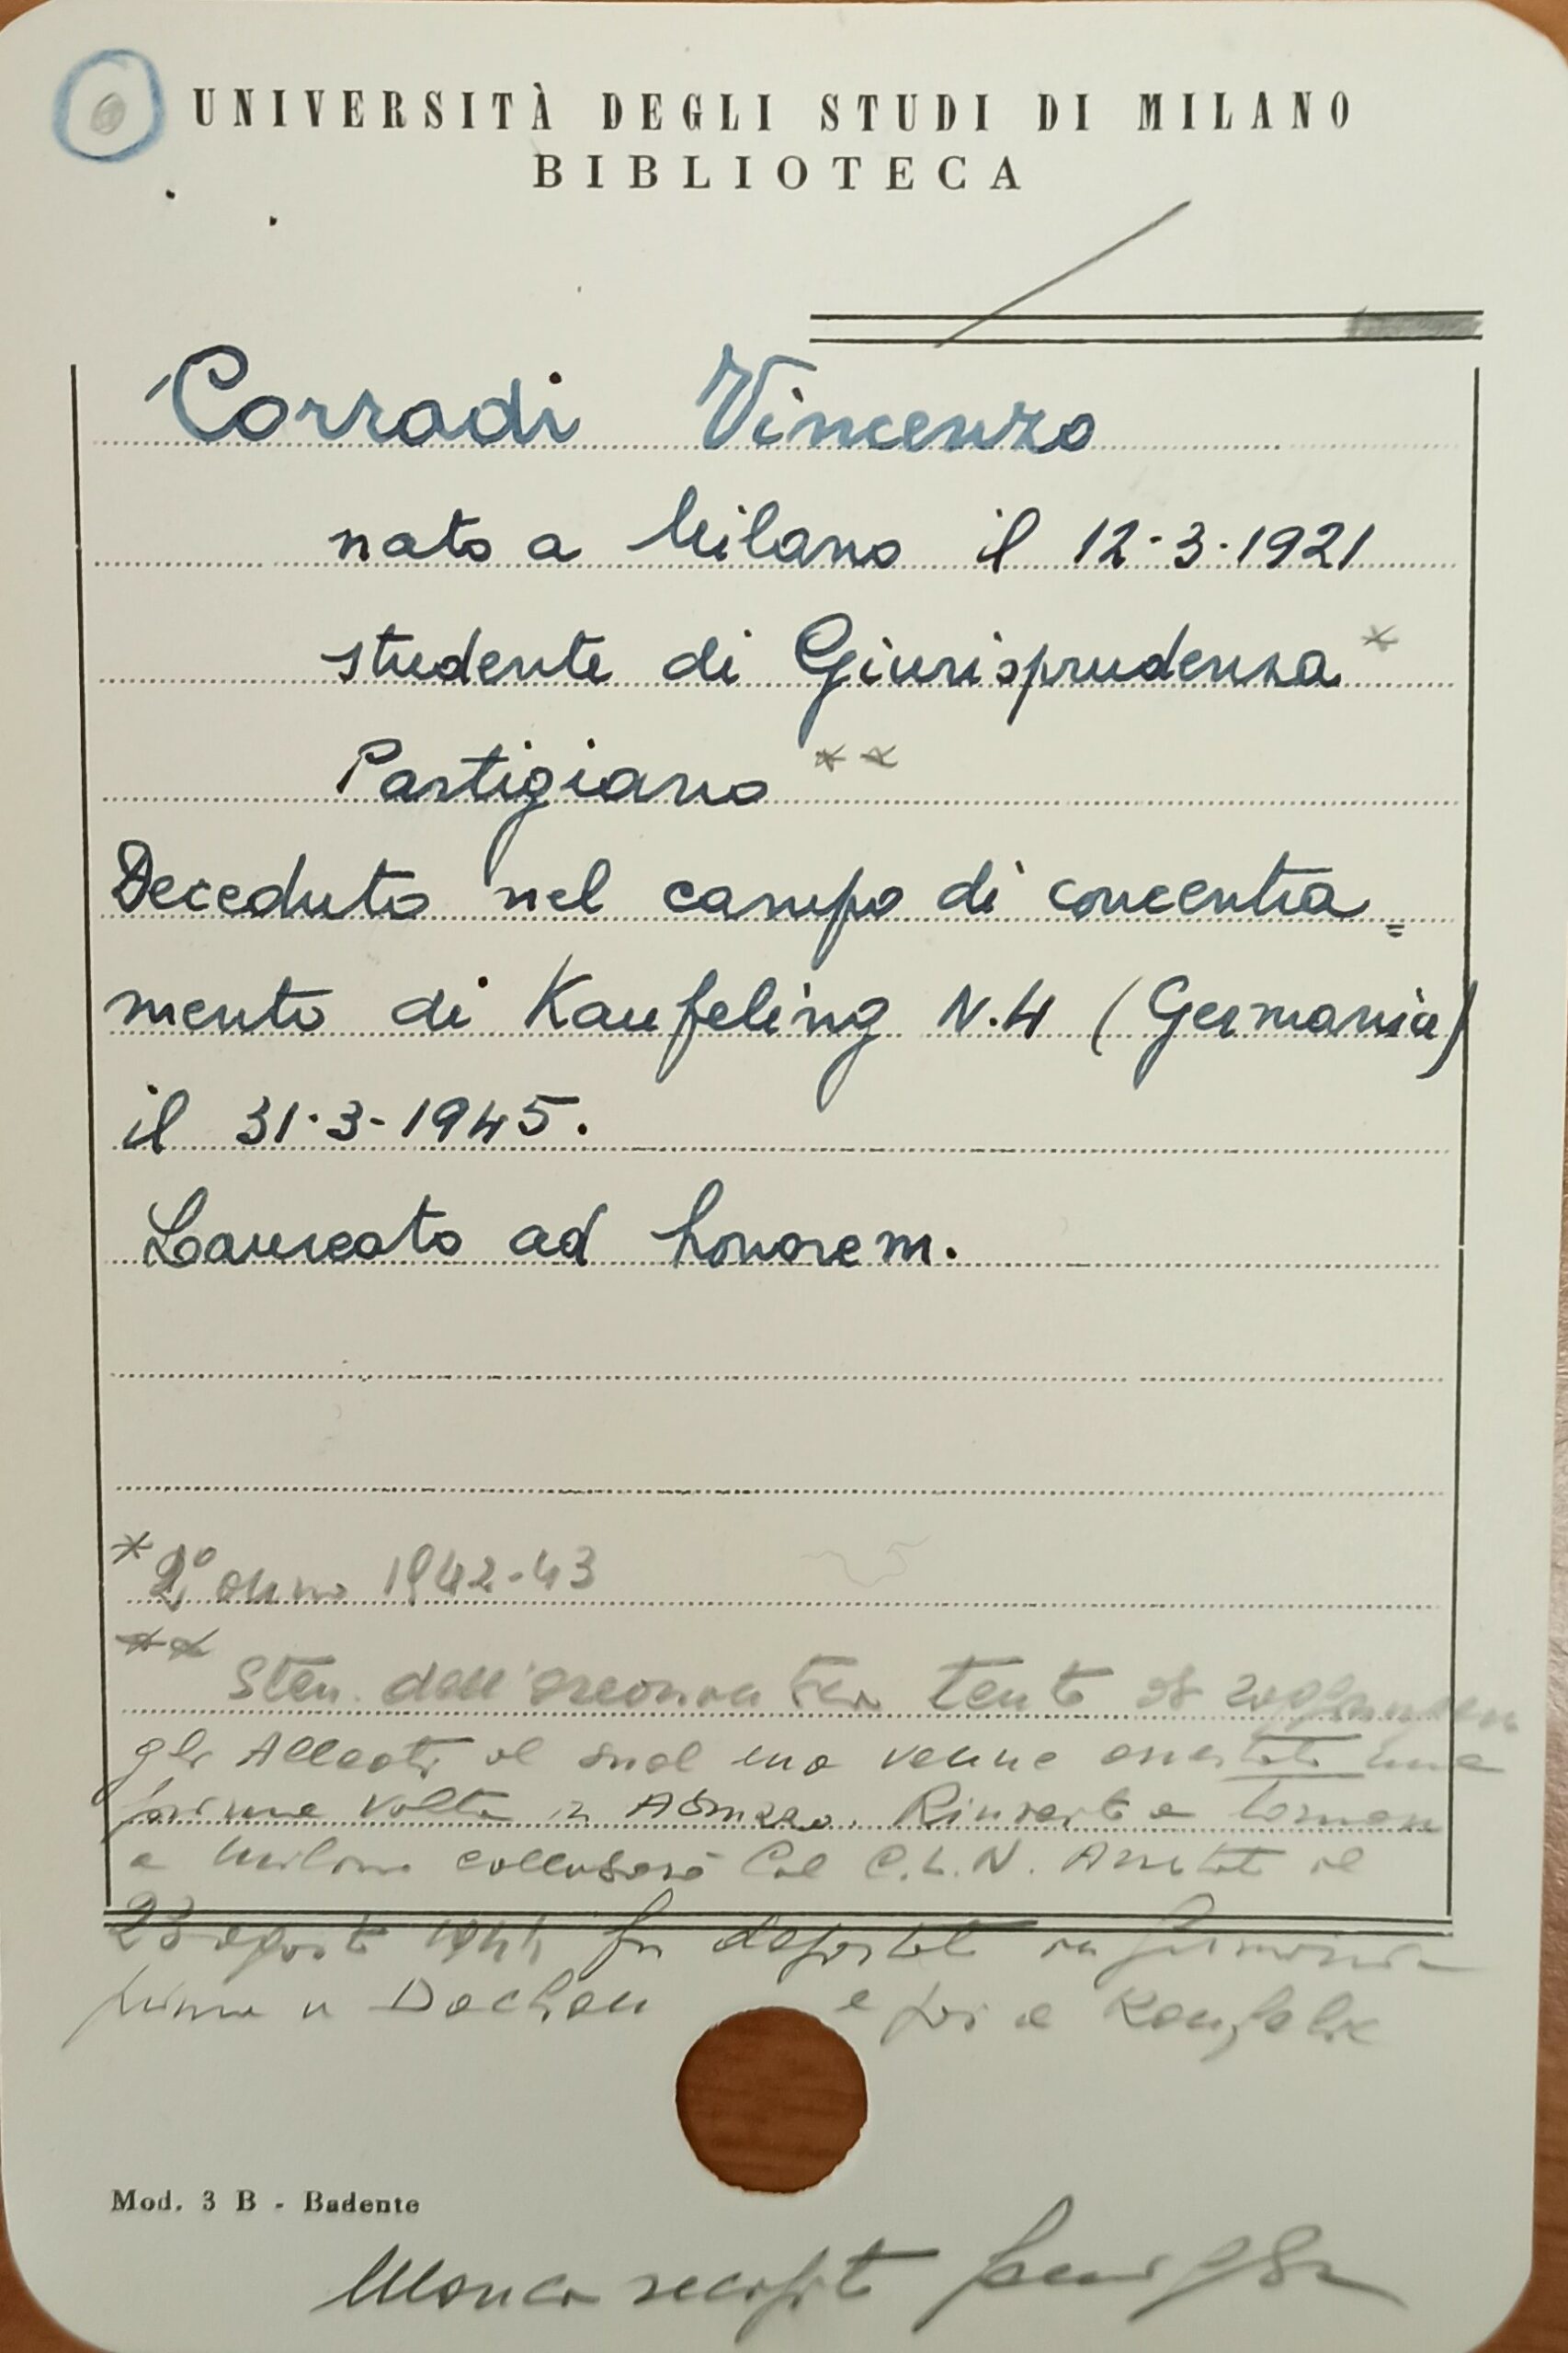 UNIVERSITÀ DEGLI STUDI DI MILANO
BIBLIOTECA
Corradi Vincenzo
nato a Milano il 12-3-1921
studente di Giurisprudenza *
Partigiano **
Deceduto nel campo di concentra=
mento di Kaufeling N.4 (Germania)
il 31-3-1945.
Laureato ad honorem.
* 2° anno 1942-43
** dell' tentò di
gli Alleati al sud ma venne arrestato una
prima volta in Abruzzo. a
a Milano collaborò col C.L.N. Arrestato il
23 agosto 1944 fu deportato in Germania
prima a Dachau e poi a
Mod. 3 B - Badente
Manca recapito famiglia